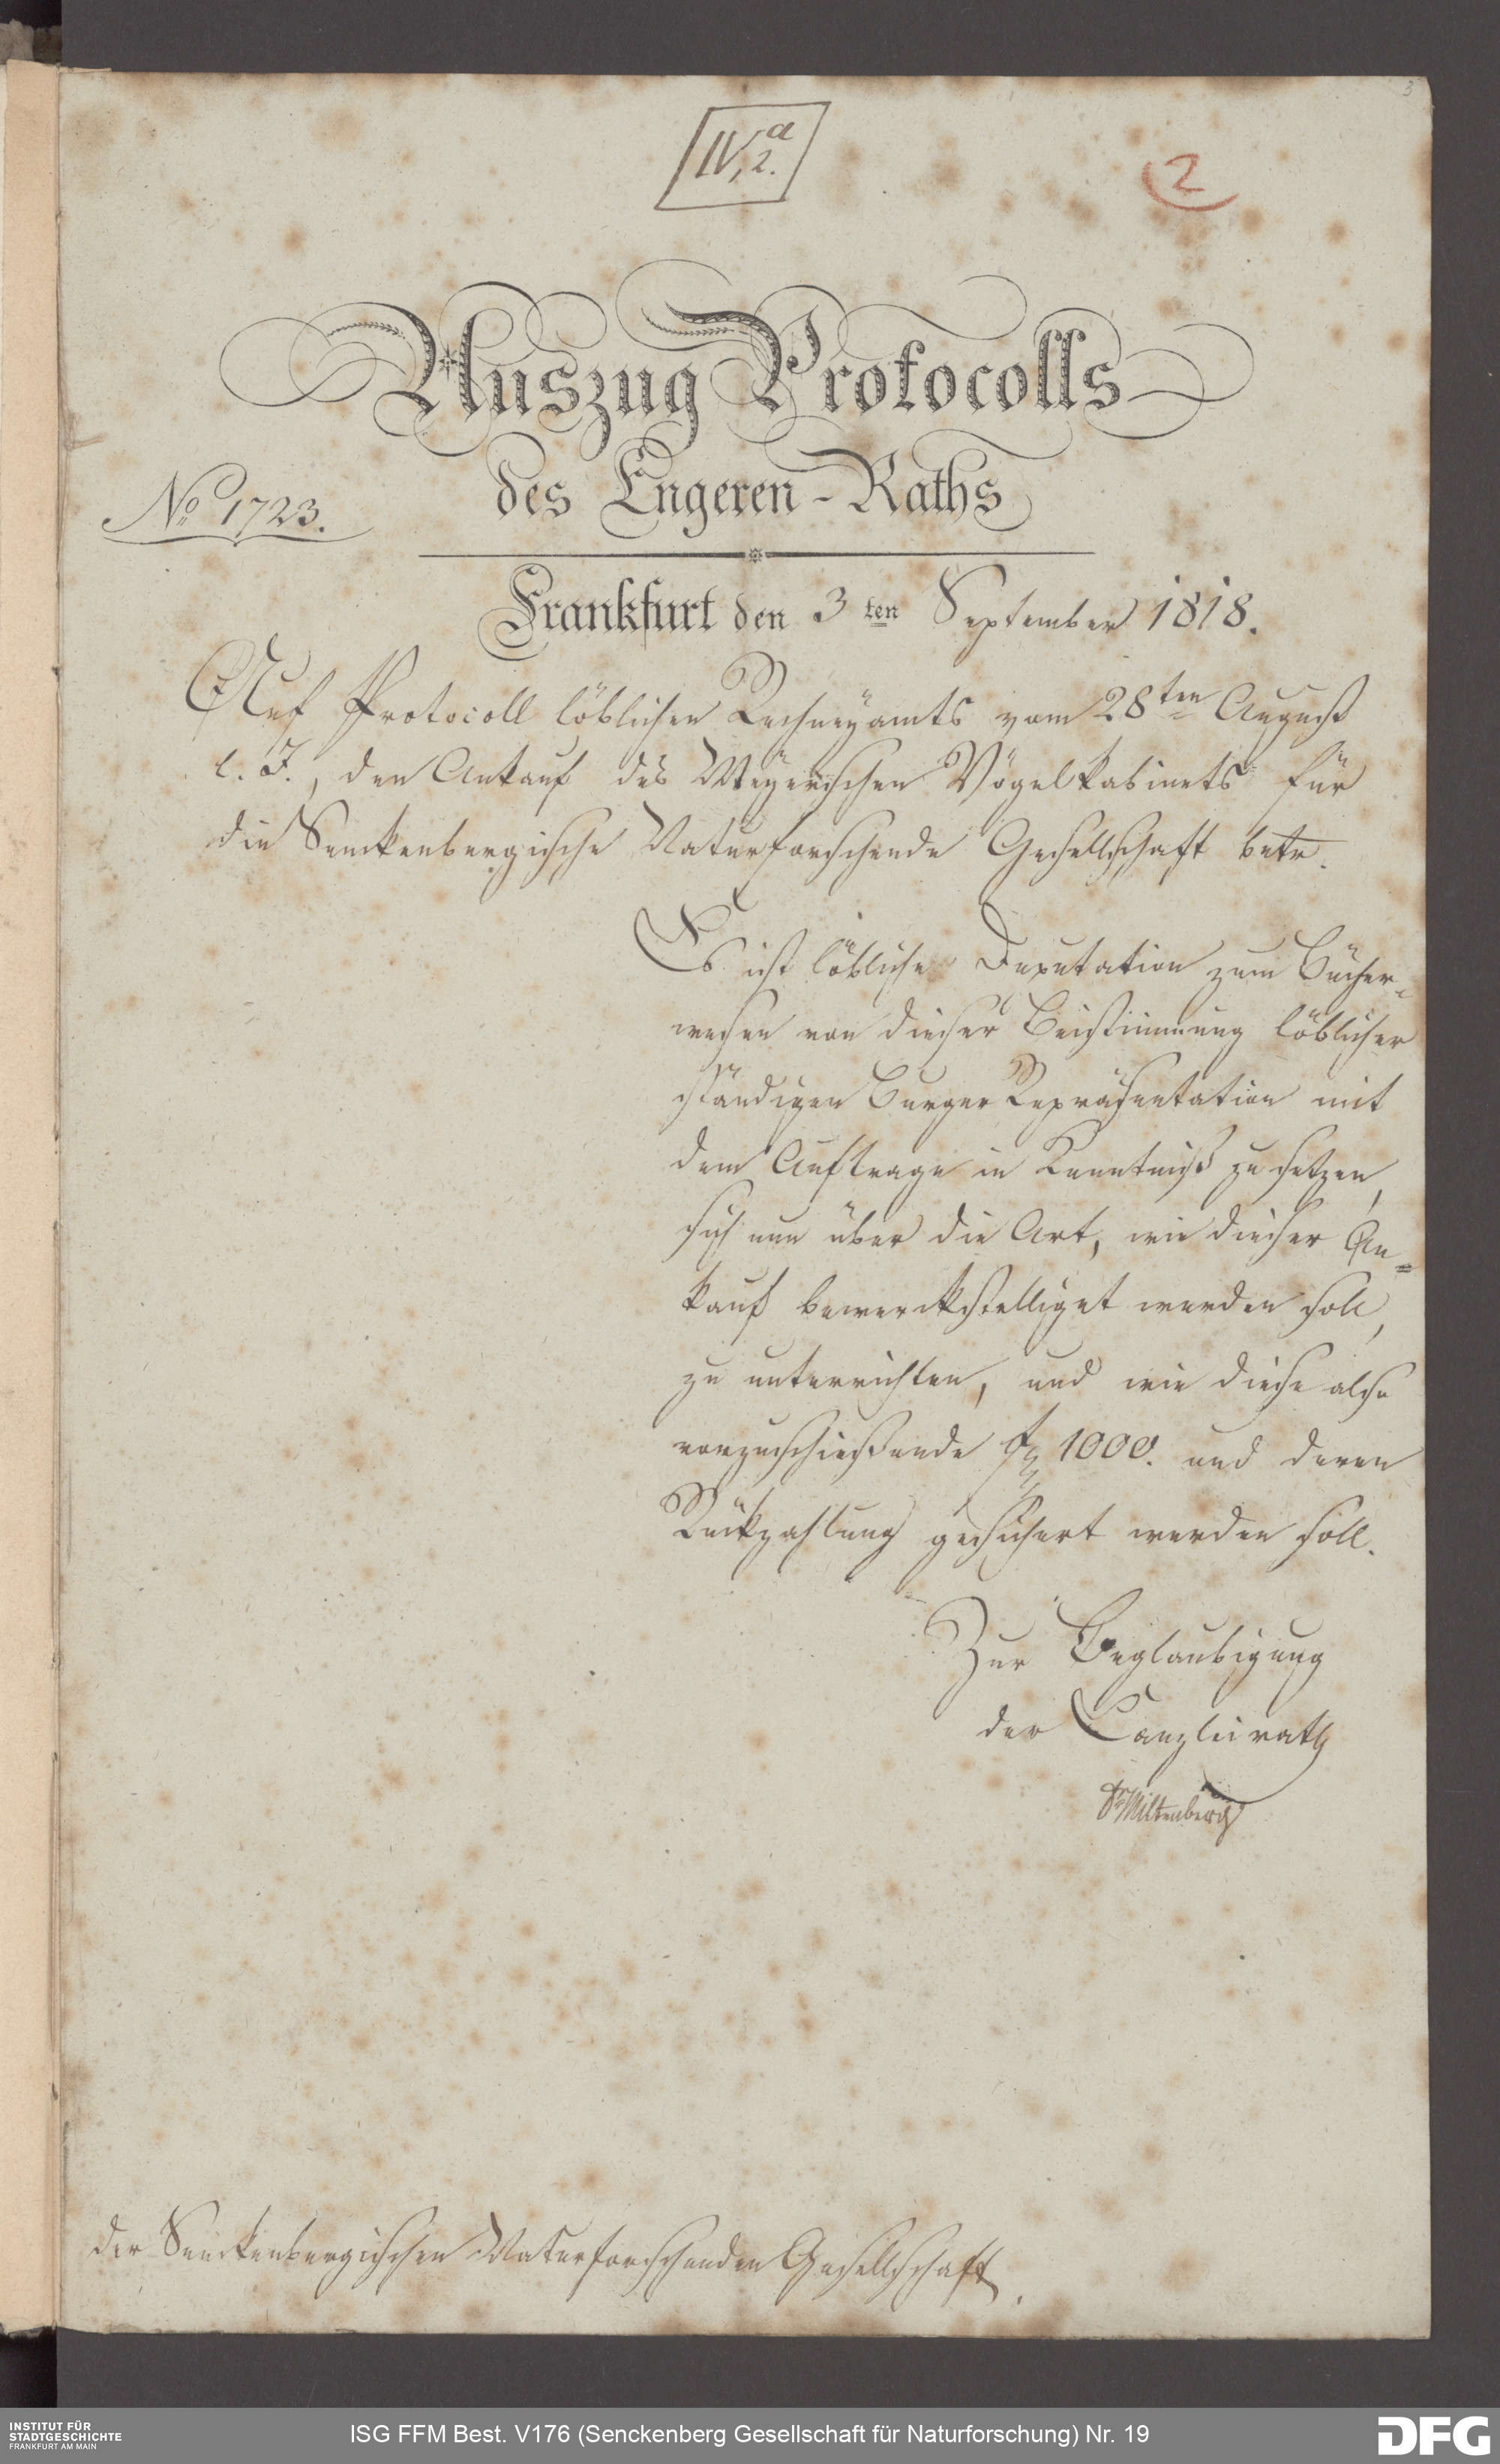 3
IV, 2.a
2
Auszug Protocolls
des Engeren-Raths
No 1723.
Frankfurt den 3ten September 1818.
Auf Protocoll löblichen Rechneyamts vom 28ten August
l. J., den Ankauf des Meyerischen Vögelkabinets für
die Senckenbergische Naturforschende Gesellschaft betr.
Es ist löbliche Deputation zum Bücher-
wesen von dieser Beistimmung löblicher
ständigen Burger Repräsentation mit
dem Auftrage in Kenntniß zu setzen,
sich nun über die Art, wie dieser An=
kauf bewerckstelliget werden soll,
zu unterrichten, und wie diese also
vorzuschießende 1000. und deren
Rückzahlung gesichert werden soll.
Zur Beglaubigung
der Canzleirath
Dr Miltenberg
der Senckenbergischen Naturforschenden Gesellschaft.
INSTITUT FÜR
STADTGESCHICHTE
FRANKFURT AM MAIN
ISG FFM Best. V176 (Senckenberg Gesellschaft für Naturforschung) Nr. 19
DFG